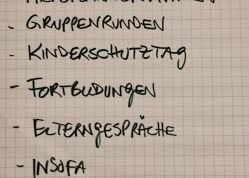 - GRUPPENRUNDEN
- KINDERSCHUTZTAG
- FORTBILDUNGEN
- ELTERNGESPRÄCHE
- INSOFA